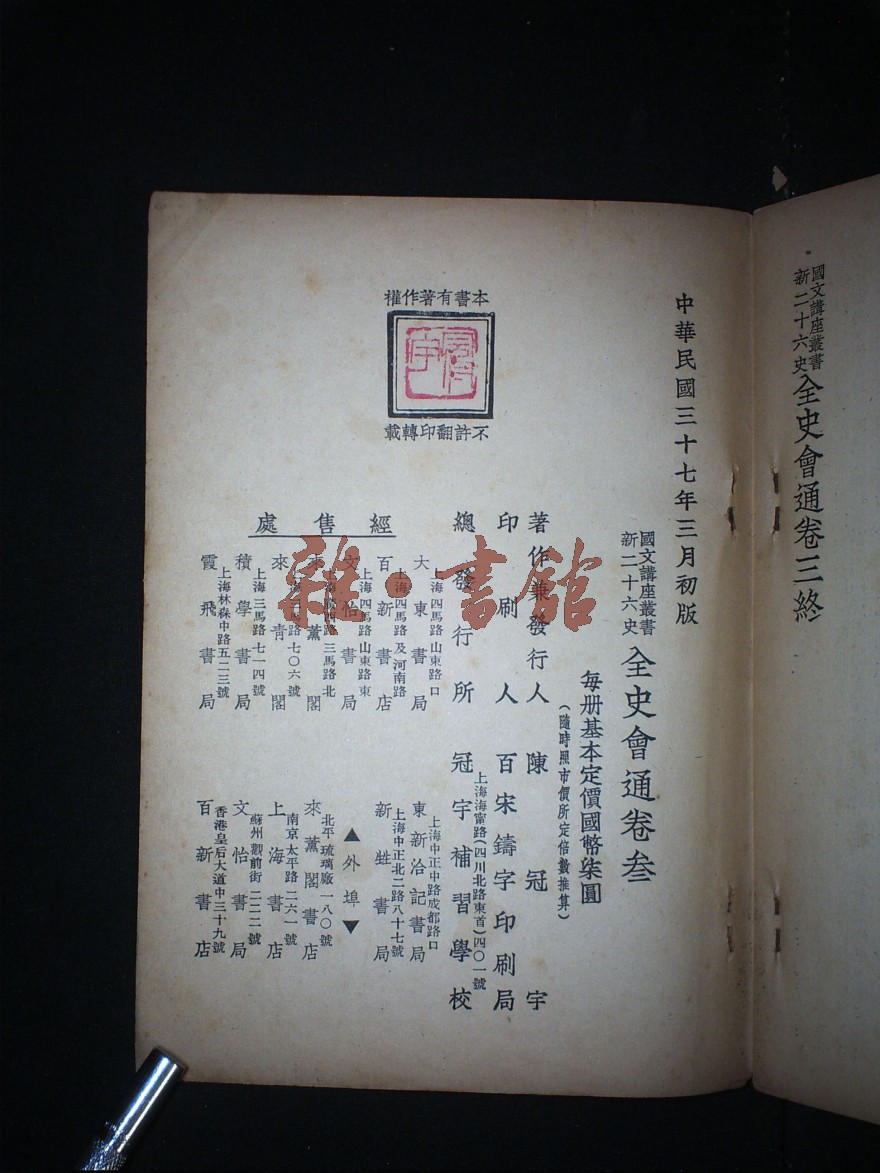 國文講座叢書
新二十六史
全史會通卷三終
中華民國三十七年三月初版
國文講座叢書
新二十六史
全史會通卷叁
每册基本定價國幣柒圓
（隨時照市價所定倍數推算）
著作兼發行人 陳冠宇
印刷人 百宋鑄字印刷局
上海海甯路（四川北路東首）四〇一號
總發行所 冠宇補習學校
本書有著作權
不許翻印轉載
經售處
上海四馬路山東路口
大東書局
上海四馬路及河南路
百新書店
上海四馬路山東路東
文怡書局
三馬路北
來薰閣
七〇六號
來青閣
上海三馬路七一四號
積學書局
上海林森中路五二三號
霞飛書局
上海中正中路成都路口
東新洽記書局
上海中正北二路八十七號
新甡書局
▲外埠▼
北平琉璃廠一八〇號
來薰閣書店
南京太平路二六一號
上海書店
蘇州觀前街二二二號
文怡書局
香港皇后大道中三十九號
百新書店
雜·書館